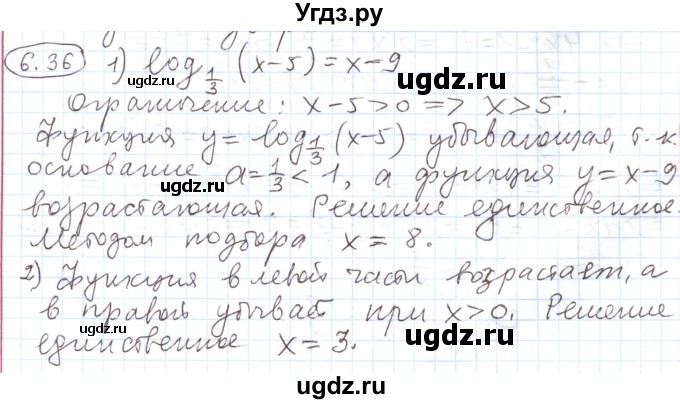 Угдз.ру
6.36 1) log 1/3 (x-5) = x-9
ugdz.ru ugdz.ru
Ограничение: x-5>0 => x>5.
Функция y = log 1/3 (x-5) убывающая, т.к.
основание a = 1/3 < 1, а функция y = x-9
ugdz.ru ugdz.ru
возрастающая. Решение единственное.
Методом подбора x = 8.
2) Функция в левой части возрастает, а
в правой убывает при x>0. Решение
ugdz.ru ugdz.ru
единственное x = 3.
ugdz.ru